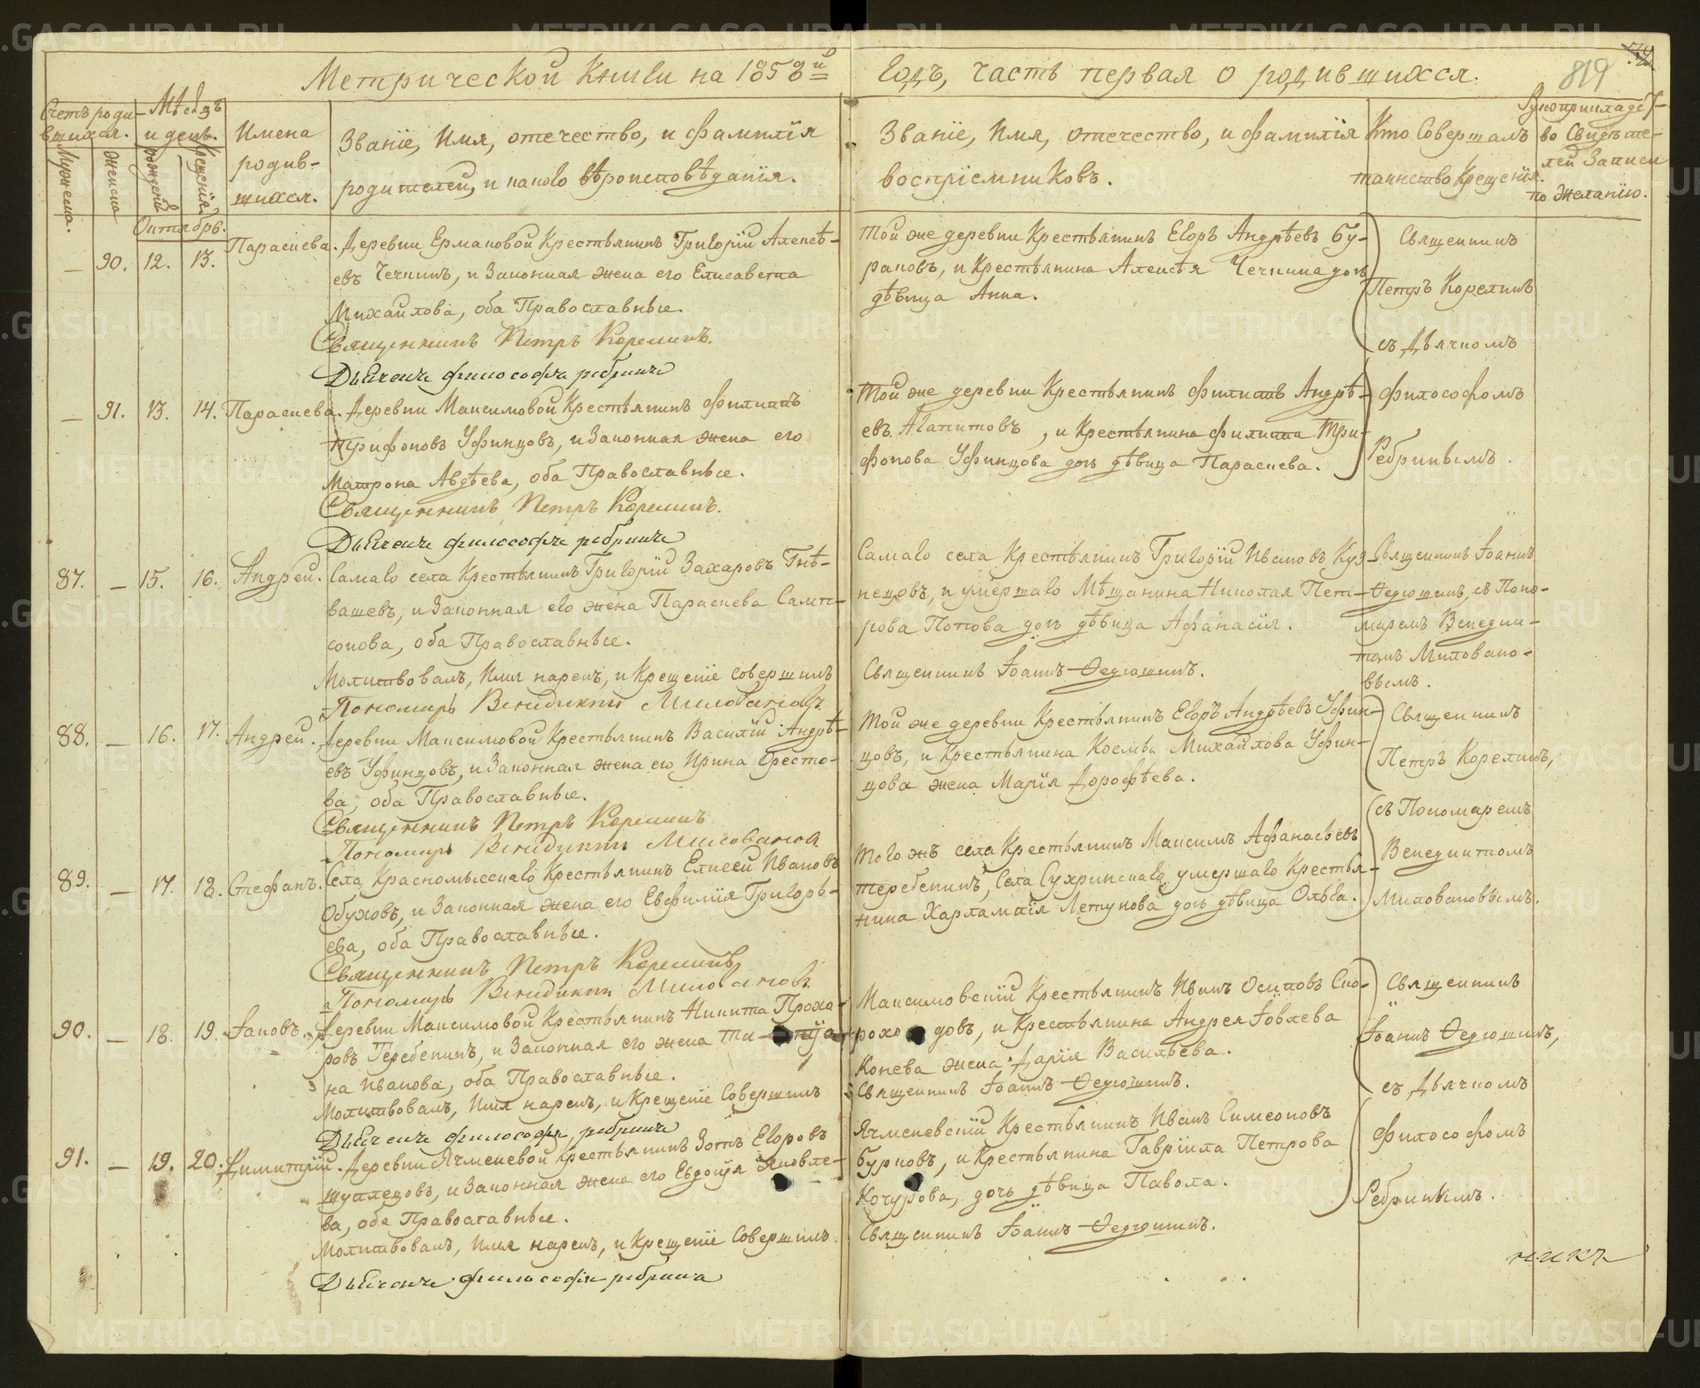 Метрической книги на 1858й годъ, часть первая о родившихся.
819
Счетъ роди-
вшихся.
Мужеска.
Женска
Мѣсяцъ
и день.
рожденiя
крещенiя
Имена
родив-
шихся.
Званiе, Имя, отечество, и фамилiя
родителей, и какого вѣроисповѣданiя.
Званiе, Имя, отечество, и фамилiя
воспрiемниковъ.
Кто Совершалъ
таинство Крещенiя.
Рукоприкладст-
во Свидѣте-
лей Записи
по желанiю.
Октябрь.
— 90. 12. 13. Параскева. Деревни Ермаковой Крестьянинъ Григорiй Алексѣ-
евъ Чечкинъ, и Законная жена его Елисавета
Михайлова, оба Православные.
Священникъ Петръ Корелинъ.
Дьячекъ философъ ребринъ
Той же деревни Крестьянинъ Егоръ Андрѣевъ Бу-
раковъ, и Крестьянина Алексѣя Чечкина дочь
дѣвица Анна.
Священникъ
Петръ Корелинъ
съ Дьячкомъ
— 91. 13. 14. Параскева. Деревни Максимовой Крестьянинъ Филиппъ
Трифоновъ Уфинцовъ, и Законная жена его
Матрона Авдѣева, оба Православные.
Священникъ Петръ Корелинъ.
Дьячекъ философъ ребринъ
Той же деревни Крестьянинъ Филиппъ Андрѣ-
евъ Агапитовъ, и Крестьянина Филиппа Три-
фонова Уфинцова дочь дѣвица Параскева.
Философомъ
Ребринымъ.
87. — 15. 16. Андрей. Самаго села Крестьянинъ Григорiй Захаровъ Гнѣ-
вашевъ, и Законная его жена Параскева Самп-
сонова, оба Православные.
Молитвовалъ, Имя нарекъ, и Крещенiе совершилъ
Пономарь Венедиктъ Миловановъ
Самаго села Крестьянинъ Григорiй Ивановъ Куз-
нецовъ, и умершаго Мѣщанина Николая Пет-
рова Попова дочь дѣвица Афанасiя.
Священникъ Iоаннъ Ѳедюшинъ.
Священникъ Iоаннъ
Ѳедюшинъ, съ Поно-
маремъ Венедик-
томъ Миловано-
вымъ.
88. — 16. 17. Андрей. Деревни Максимовой Крестьянинъ Василiй Андрѣ-
евъ Уфинцовъ, и Законная жена его Ирина Оресто-
ва, оба Православные.
Священникъ Петръ Корелинъ
Пономарь Венедиктъ Миловановъ
Той же деревни Крестьянинъ Егоръ Андрѣевъ Уфин-
цовъ, и Крестьянина Косьмы Михайлова Уфин-
цова жена Марiя Дорофѣева.
Священникъ
Петръ Корелинъ,
съ Пономаремъ
89. — 17. 18. Стефанъ. Села Красномысскаго Крестьянинъ Елисей Ивановъ
Обуховъ, и Законная жена его Евфимiя Григорь-
ева, оба Православные.
Священникъ Петръ Корелинъ
Пономарь Венедиктъ Миловановъ
Того жъ села Крестьянинъ Максимъ Афанасьевъ
Теребенинъ, Села Сухринскаго умершаго Крестья-
нина Харлампiя Летунова дочь дѣвица Ольга.
Венедиктомъ
Миловановымъ.
90. — 18. 19. Iаковъ. Деревни Максимовой Крестьянинъ Никита Прохо-
ровъ Теребенинъ, и Законная его жена
на Иванова, оба Православные.
Молитвовалъ, Имя нарекъ, и Крещенiе Совершилъ
Дьячекъ философъ ребринъ
Максимовскiй Крестьянинъ Иванъ Осиповъ Ско-
роходовъ, и Крестьянина Андрея Iовлева
Конева жена Дарiя Васильева.
Священникъ Iоаннъ Ѳедюшинъ.
Священникъ
Iоаннъ Ѳедюшинъ,
съ Дьячкомъ
91. — 19. 20. Димитрiй. Деревни Ячменевой Крестьянинъ Зотъ Егоровъ
Шуплецовъ, и Законная жена его Евдокiя Яковле-
ва, оба Православные.
Молитвовалъ, Имя нарекъ, и Крещенiе Совершилъ
Дьячекъ философъ ребринъ
Ячменевскiй Крестьянинъ Иванъ Симеоновъ
Бурковъ, и Крестьянина Гаврiила Петрова
Кочурова, дочь дѣвица Павола.
Священникъ Iоаннъ Ѳедюшинъ.
Философомъ
Ребринымъ.
никъ